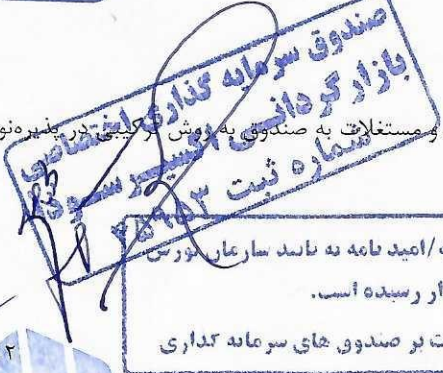 صندوق سرمایه گذاری اختصاصی
بازارگردانی اکسیر سودا
شماره ثبت ۳۵۹۵۳
و مستغلات به صندوق به روش ترکیبی در پذیره‌نو
/امید نامه به تایید سازمان بورس
ار رسیده است.
ت بر صندوق های سرمایه گذاری
۲